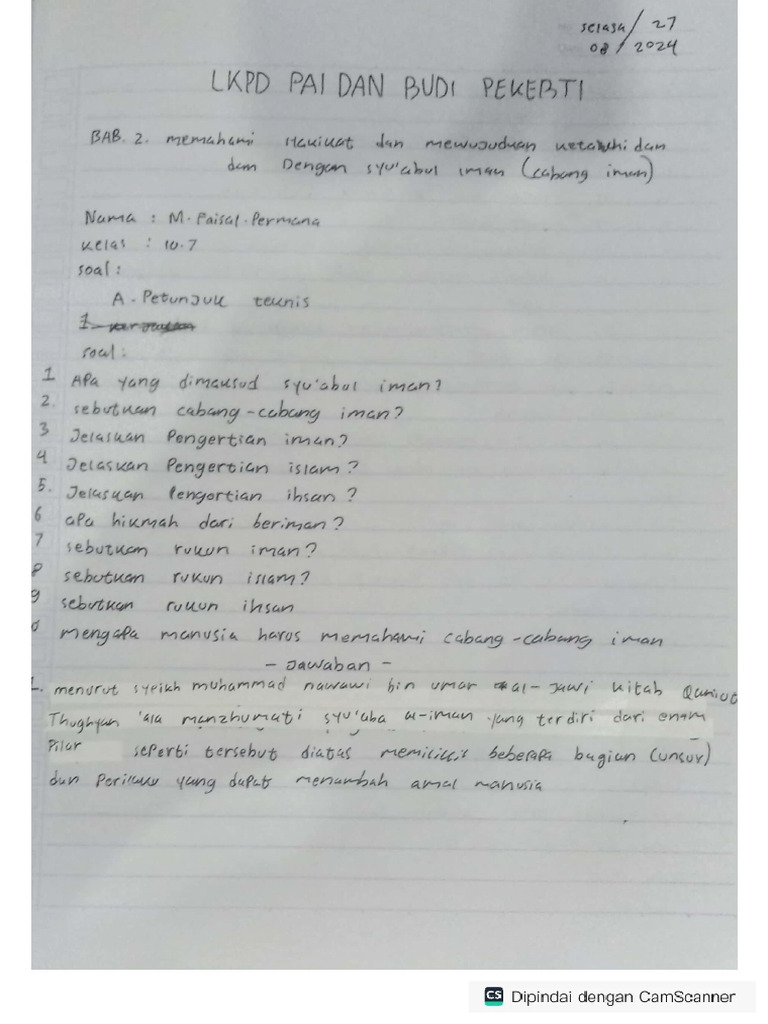 selasa / 27
08 / 2024
LKPD PAI DAN BUDI PEKERTI
BAB. 2. memahami Hakikat dan mewujudkan ketauhidan
dan Dengan syu'abul iman (cabang iman)
Nama : M. Faisal. Permana
kelas : 10.7
soal :
A. Petunjuk teknis
1
soal :
1 APa yang dimaksud syu'abul iman?
2. sebutkan cabang-cabang iman?
3 Jelaskan Pengertian iman?
4 Jelaskan Pengertian islam?
5. Jelaskan Pengertian ihsan?
6 aPa hikmah dari beriman?
7 sebutkan rukun iman?
8 sebutkan rukun islam?
9 sebutkan rukun ihsan
0 mengapa manusia harus memahami cabang-cabang iman
- Jawaban -
1. menurut syeikh muhammad nawawi bin umar al-Jawi kitab Qamiut
Thughyan 'ala manzhumati syu'aba al-iman yang terdiri dari enam
Pilar seperti tersebut diatas memiliki beberapa bagian (unsur)
dan Perilaku yang dapat menambah amal manusia
CS Dipindai dengan CamScanner